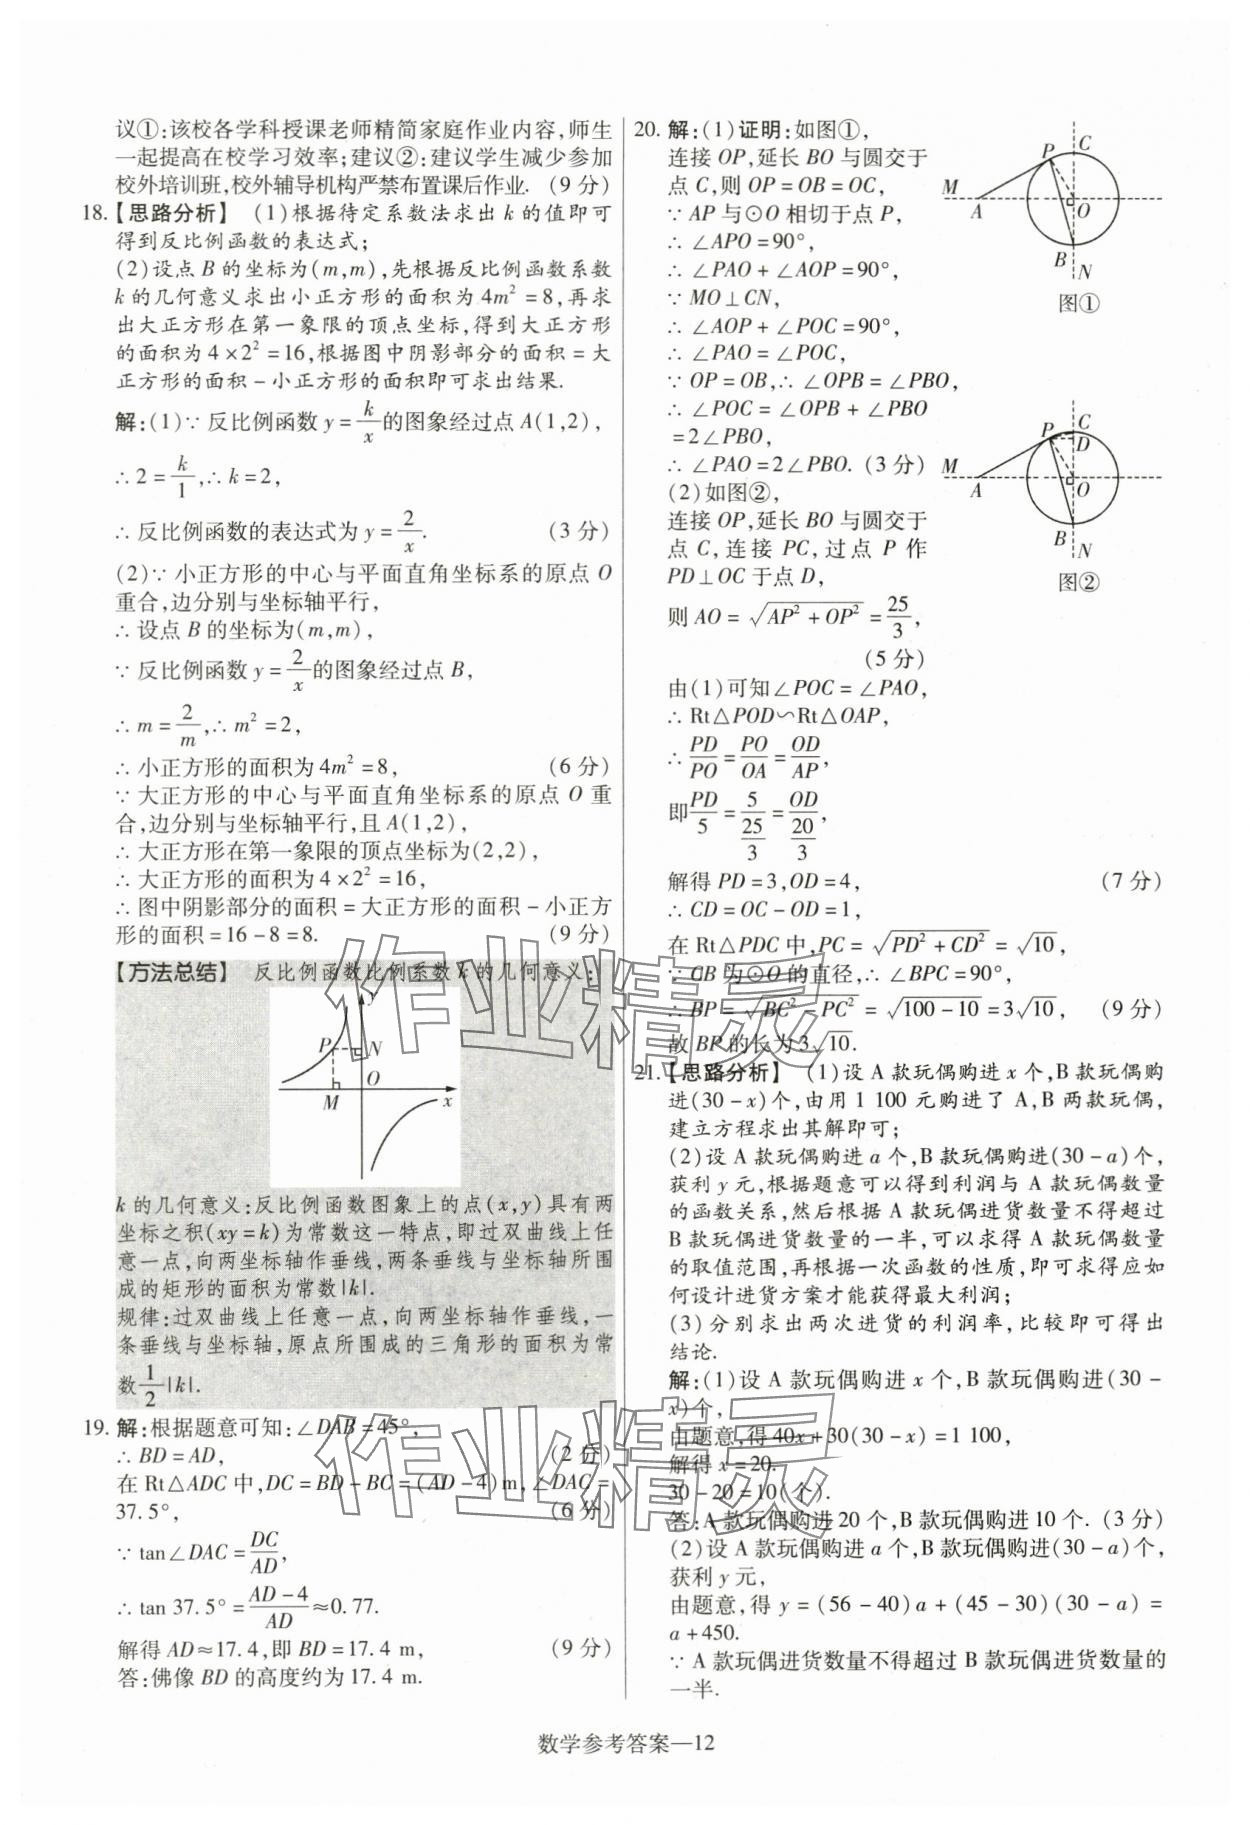 议①:该校各学科授课老师精简家庭作业内容,师生
一起提高在校学习效率;建议②:建议学生减少参加
校外培训班,校外辅导机构严禁布置课后作业. (9 分)
18.【思路分析】 (1)根据待定系数法求出 k 的值即可
得到反比例函数的表达式;
(2)设点 B 的坐标为(m,m),先根据反比例函数系数
k 的几何意义求出小正方形的面积为 4m²=8,再求
出大正方形在第一象限的顶点坐标,得到大正方形
的面积为 4×2²=16,根据图中阴影部分的面积=大
正方形的面积-小正方形的面积即可求出结果.
解:(1)∵ 反比例函数 y=k/x 的图象经过点 A(1,2),
∴ 2=k/1,∴ k=2,
∴ 反比例函数的表达式为 y=2/x. (3 分)
(2)∵ 小正方形的中心与平面直角坐标系的原点 O
重合,边分别与坐标轴平行,
∴ 设点 B 的坐标为(m,m),
∵ 反比例函数 y=2/x 的图象经过点 B,
∴ m=2/m,∴ m²=2,
∴ 小正方形的面积为 4m²=8, (6 分)
∵ 大正方形的中心与平面直角坐标系的原点 O 重
合,边分别与坐标轴平行,且 A(1,2),
∴ 大正方形在第一象限的顶点坐标为(2,2),
∴ 大正方形的面积为 4×2²=16,
∴ 图中阴影部分的面积=大正方形的面积-小正方
形的面积=16-8=8. (9 分)
【方法总结】 反比例函数比例系数 k 的几何意义:
y
P
N
O
M
x
k 的几何意义:反比例函数图象上的点(x,y)具有两
坐标之积(xy=k)为常数这一特点,即过双曲线上任
意一点,向两坐标轴作垂线,两条垂线与坐标轴所围
成的矩形的面积为常数|k|.
规律:过双曲线上任意一点,向两坐标轴作垂线,一
条垂线与坐标轴,原点所围成的三角形的面积为常
数1/2|k|.
19. 解:根据题意可知:∠DAB=45°,
∴ BD=AD, (2 分)
在 Rt△ADC 中,DC=BD-BC=(AD-4)m,∠DAC=
37.5°, (6 分)
∵ tan∠DAC=DC/AD,
∴ tan 37.5°=(AD-4)/AD≈0.77.
解得 AD≈17.4,即 BD=17.4 m, (9 分)
答:佛像 BD 的高度约为 17.4 m.
20. 解:(1)证明:如图①,
连接 OP,延长 BO 与圆交于
点 C,则 OP=OB=OC,
∵ AP 与⊙O 相切于点 P,
∴ ∠APO=90°,
∴ ∠PAO+∠AOP=90°,
∵ MO⊥CN,
∴ ∠AOP+∠POC=90°,
∴ ∠PAO=∠POC,
∵ OP=OB,∴ ∠OPB=∠PBO,
∴ ∠POC=∠OPB+∠PBO
=2∠PBO,
∴ ∠PAO=2∠PBO. (3 分)
P
C
M
A
O
B
N
图①
(2)如图②,
连接 OP,延长 BO 与圆交于
点 C,连接 PC,过点 P 作
PD⊥OC 于点 D,
P
C
D
M
A
O
B
N
图②
则 AO=√(AP²+OP²)=25/3,
(5 分)
由(1)可知∠POC=∠PAO,
∴ Rt△POD∽Rt△OAP,
∴ PD/PO=PO/OA=OD/AP,
即PD/5=5/(25/3)=OD/(20/3),
解得 PD=3,OD=4, (7 分)
∴ CD=OC-OD=1,
在 Rt△PDC 中,PC=√(PD²+CD²)=√10,
∵ CB 为⊙O 的直径,∴ ∠BPC=90°,
∴ BP=√(BC²-PC²)=√(100-10)=3√10, (9 分)
故 BP 的长为 3√10.
21.【思路分析】 (1)设 A 款玩偶购进 x 个,B 款玩偶购
进(30-x)个,由用 1 100 元购进了 A,B 两款玩偶,
建立方程求出其解即可;
(2)设 A 款玩偶购进 a 个,B 款玩偶购进(30-a)个,
获利 y 元,根据题意可以得到利润与 A 款玩偶数量
的函数关系,然后根据 A 款玩偶进货数量不得超过
B 款玩偶进货数量的一半,可以求得 A 款玩偶数量
的取值范围,再根据一次函数的性质,即可求得应如
何设计进货方案才能获得最大利润;
(3)分别求出两次进货的利润率,比较即可得出
结论.
解:(1)设 A 款玩偶购进 x 个,B 款玩偶购进(30-
x)个,
由题意,得 40x+30(30-x)=1 100,
解得 x=20.
30-20=10(个).
答:A 款玩偶购进 20 个,B 款玩偶购进 10 个. (3 分)
(2)设 A 款玩偶购进 a 个,B 款玩偶购进(30-a)个,
获利 y 元,
由题意,得 y=(56-40)a+(45-30)(30-a)=
a+450.
∵ A 款玩偶进货数量不得超过 B 款玩偶进货数量的
一半.
作业精灵
作业精灵
数学参考答案—12